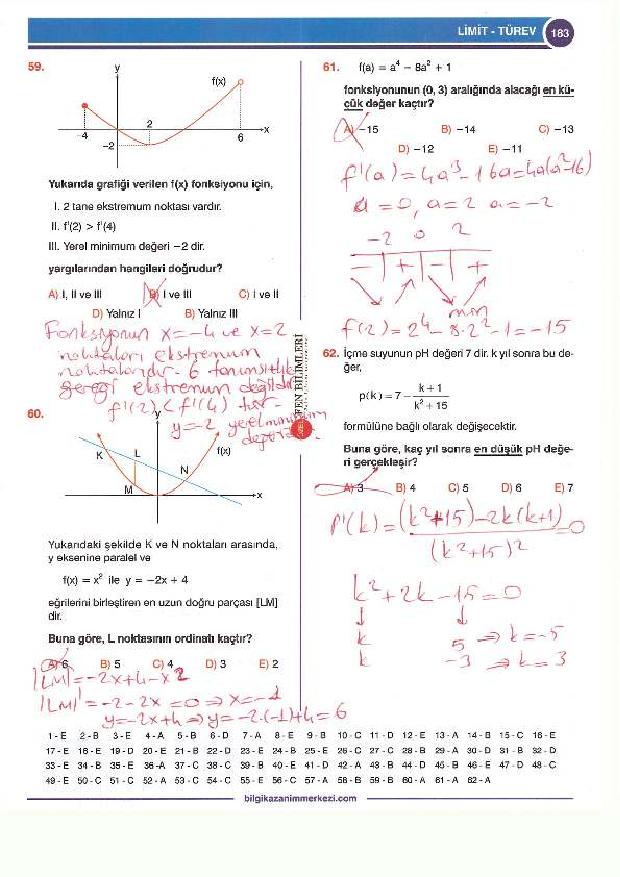 LİMİT - TÜREV 183
59.
y
f(x)
2
-4
6
x
-2
Yukarıda grafiği verilen f(x) fonksiyonu için,
I. 2 tane ekstremum noktası vardır.
II. f'(2) > f'(4)
III. Yerel minimum değeri -2 dir.
yargılarından hangileri doğrudur?
A) I, II ve III B) I ve III C) I ve II
D) Yalnız I B) Yalnız III
Fonksiyonun x=-4 ve x=2
noktaları ekstremum
noktalarıdır. 6 tanımsızlık
gereği ekstremum değildir
f'(2) < f'(4) tür.
y=-2 yerel minimum
değeri
60.
y
K
L
f(x)
N
M
x
Yukarıdaki şekilde K ve N noktaları arasında,
y eksenine paralel ve
f(x) = x² ile y = -2x + 4
eğrilerini birleştiren en uzun doğru parçası [LM]
dir.
Buna göre, L noktasının ordinatı kaçtır?
A) 6 B) 5 C) 4 D) 3 E) 2
|LM|=-2x+4-x²
|LM|'=-2-2x=0⇒x=-1
y=-2x+4⇒y=-2.(-1)+4=6
FEN BİLİMLERİ
61. f(a) = a⁴ - 8a² + 1
fonksiyonunun (0, 3) aralığında alacağı en kü-
çük değer kaçtır?
A) -15 B) -14 C) -13
D) -12 E) -11
f'(a)=4a³-16a=4a(a²-16)
a=0, a=2 a=-2
-2 0 2
- + - +
min
f(2)=2⁴-8.2²-1=-15
62. İçme suyunun pH değeri 7 dir. k yıl sonra bu de-
ğer,
p(k) = 7 - k + 1 / k² + 15
formülüne bağlı olarak değişecektir.
Buna göre, kaç yıl sonra en düşük pH değe-
ri gerçekleşir?
A) 3 B) 4 C) 5 D) 6 E) 7
P'(k)=(k²+15)-2k(k+1) / (k²+15)² =0
k²+2k-15=0
k 5 ⇒ k=-5
k -3 ⇒ k=3
1 - E 2 - B 3 - E 4 - A 5 - B 6 - D 7 - A 8 - E 9 - B 10 - C 11 - D 12 - E 13 - A 14 - B 15 - C 16 - E
17 - E 18 - E 19 - D 20 - E 21 - B 22 - D 23 - E 24 - B 25 - E 26 - C 27 - C 28 - B 29 - A 30 - D 31 - B 32 - D
33 - E 34 - B 35 - E 36 - A 37 - C 38 - C 39 - B 40 - E 41 - D 42 - A 43 - B 44 - D 45 - B 46 - E 47 - D 48 - C
49 - E 50 - C 51 - C 52 - A 53 - C 54 - C 55 - E 56 - C 57 - A 58 - B 59 - B 60 - A 61 - A 62 - A
bilgikazanimmerkezi.com